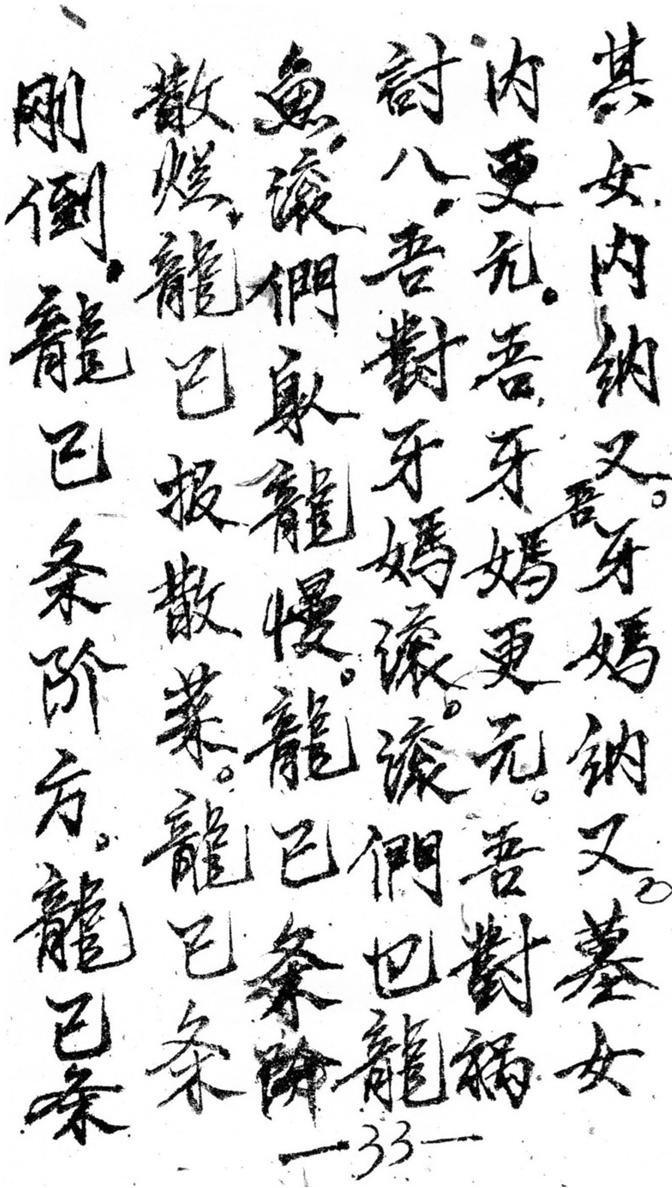 其女内纳又。吾牙媽纳又。墓女
内更元。吾牙媽更元。吾對禍
討八，吾對牙媽滚。滚們已龍
魚，滚們身龍慢。龍已条阶
散，龍已报散菜。龍已条
剛倒，龍已条阶方。龍已条
—33—